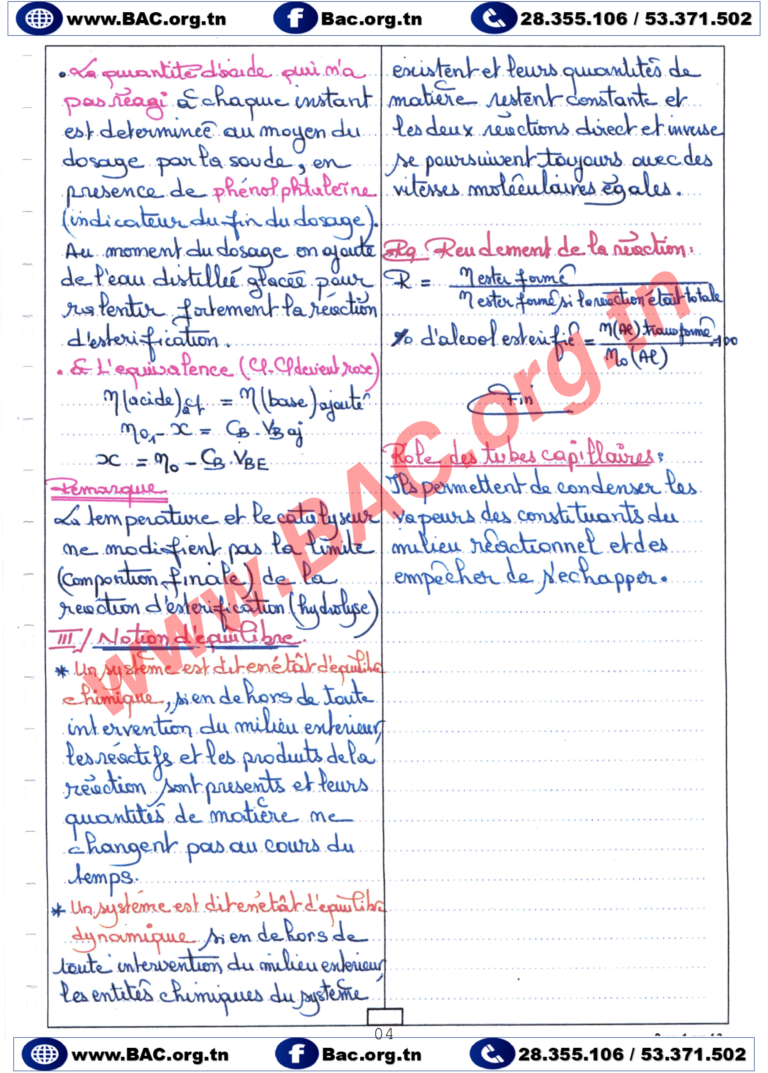 www.BAC.org.tn Bac.org.tn 28.355.106 / 53.371.502
• La quantité d'acide qui n'a
pas réagi à chaque instant
est determineé au moyen du
dosage par la soude, en
presence de phénolphtaleïne
(indicateur du fin du dosage).
Au moment du dosage on ajoute
de l'eau distilleé glaceé pour
ralentir fortement la réaction
d'esterification.
• à L'equivalence (
devient rose)
η(acide) = η(base)ajouté
η01 - x = CB.VBaj
x = η0 - CB.VBE
Remarque
La temperature et le catalyseur
ne modifient pas la limite
(compontion finale) de la
reaction d'esterification (hydrolyse)
III/ Notion d'equilibre.
* Un système est dit en état d'équilibre
chimique, si en de hors de toute
intervention du milieu exterieur,
les réactifs et les produits de la
réaction sont presents et leurs
quantités de matière ne
changent pas au cours du
temps.
* Un système est dit en état d'equilibre
dynamique si en de hors de
toute intervention du milieu exterieur,
les entités chimiques du système
existent et leurs quantités de
matière restent constante et
les deux réactions direct et inverse
se poursuivent toujours avec des
vitesses moléculaires égales.
Rq Rendement de la réaction:
R = η ester formé / η ester formé si la réaction était totale
% d'alcool esterifié = η(Al) transformé / η0(Al) .100
Fin
Role des tubes capillaires:
Ils permettent de condenser les
vapeurs des constituants du
milieu réactionnel et des
empêcher de s'echapper.
www.BAC.org.tn
04
www.BAC.org.tn Bac.org.tn 28.355.106 / 53.371.502